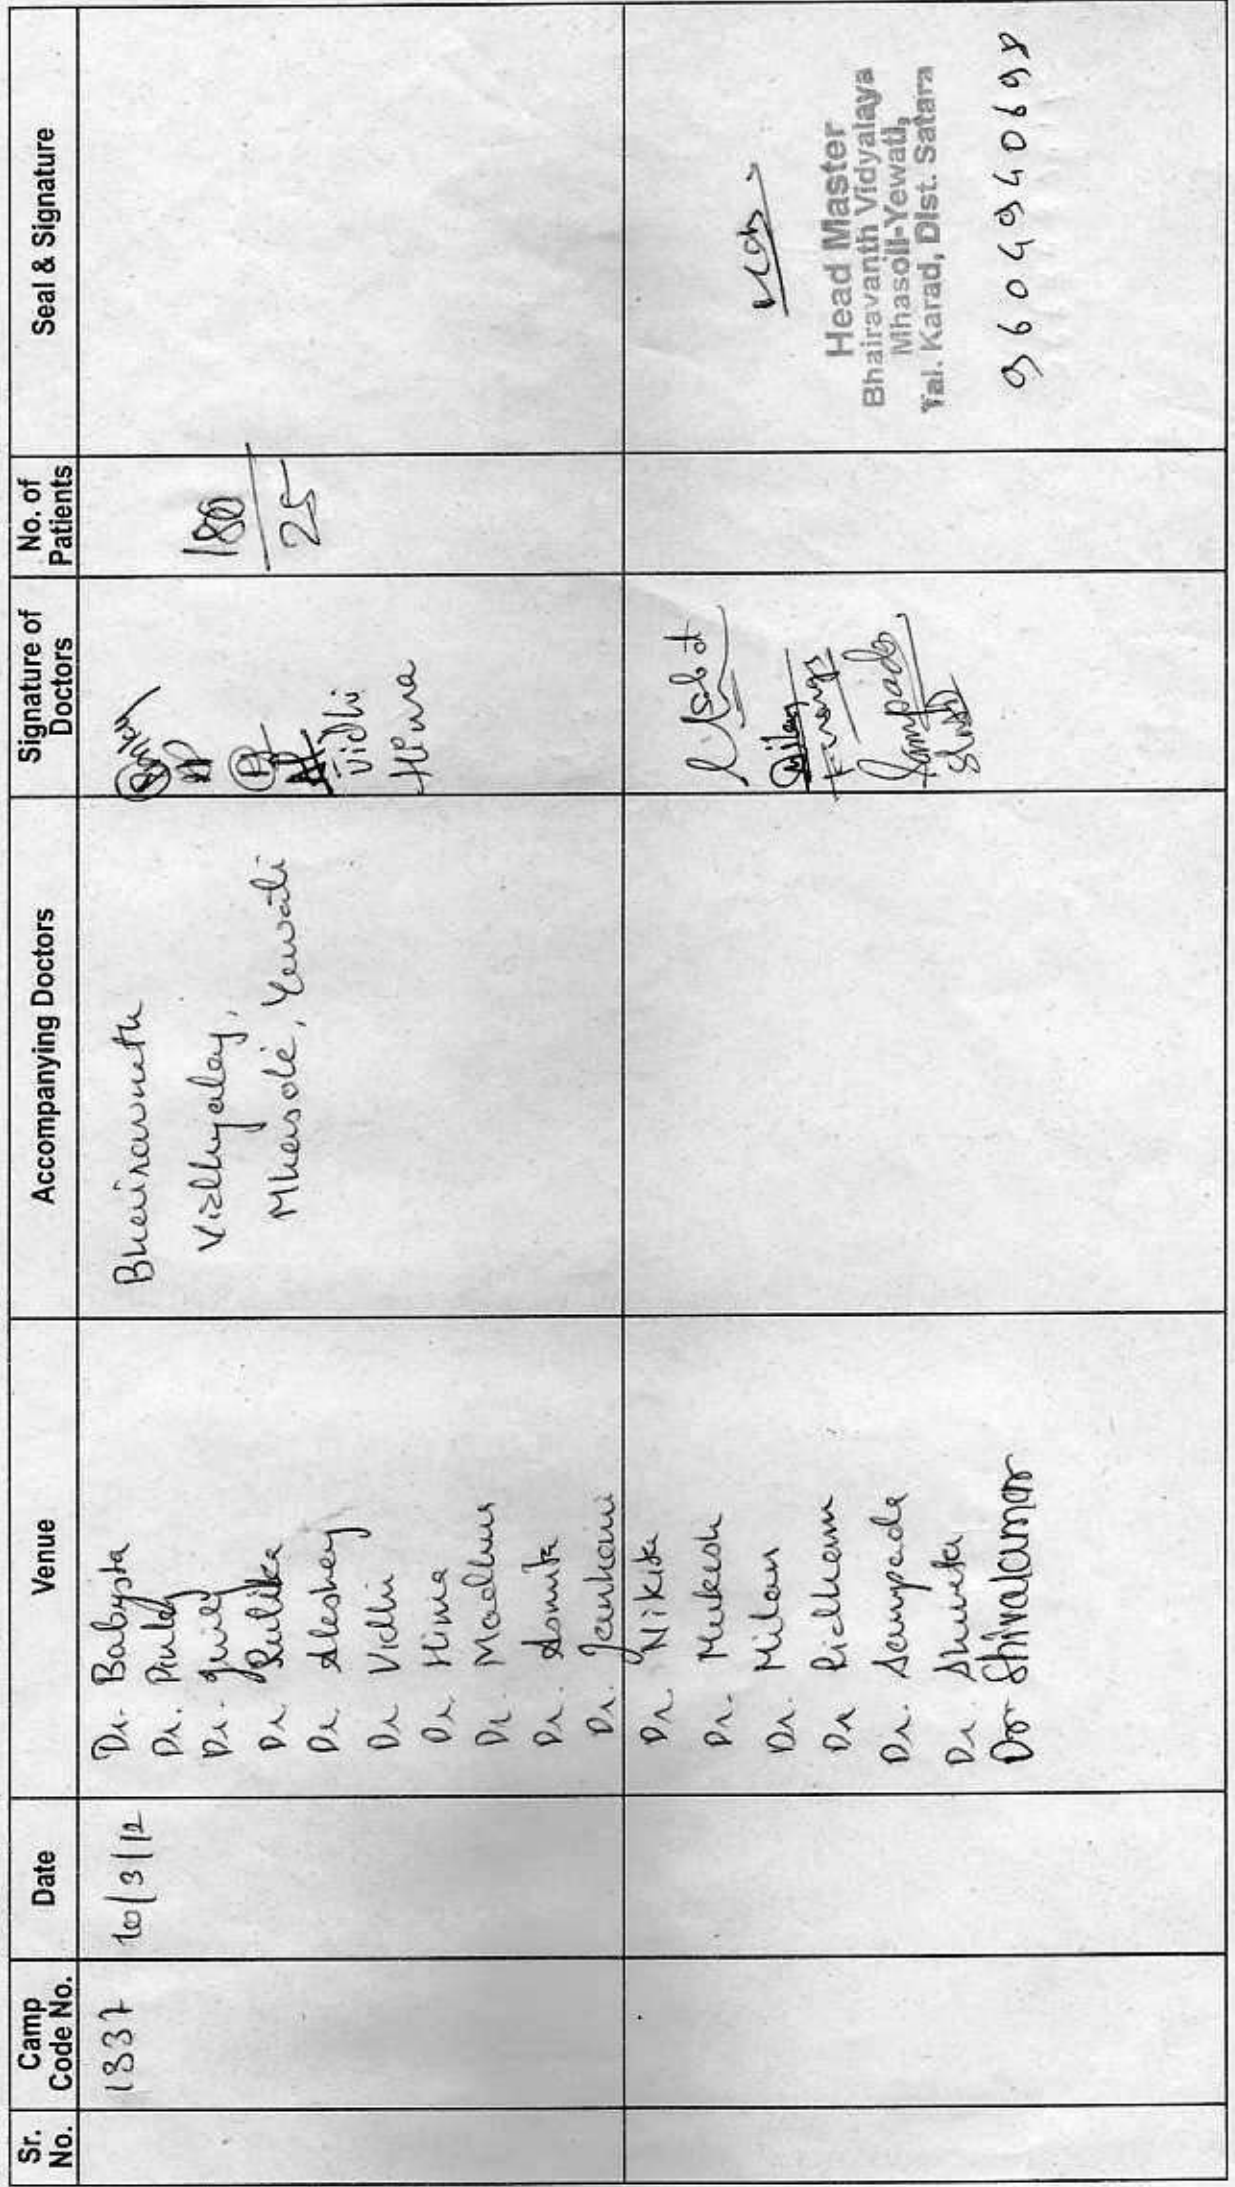 Sr. No.
Camp Code No.
Date
Venue
Accompanying Doctors
Signature of Doctors
No. of Patients
Seal & Signature
1337
10/3/12
Dr. Babysta
Dr.
Dr. Juiley
Dr Rutika
Dr. Akshay
Dr Vidhi
Dr. Hima
Dr. Madhur
Dr. Asmita
Dr. Janhavi
Bhairavnath
Vidhyalay,
Mhasole, Yewati
Vidhi
Hima
180
25
Dr. Nikita
Dr. Mukesh
Dr. Milan
Dr Ridham
Dr. Sampada
Dr. Shweta
Dr Shivakumar
Milan
Sampada
Head Master
Bhairavanth Vidyalaya
Mhasoli-Yewati,
Tal. Karad, Dist. Satara
9604940698